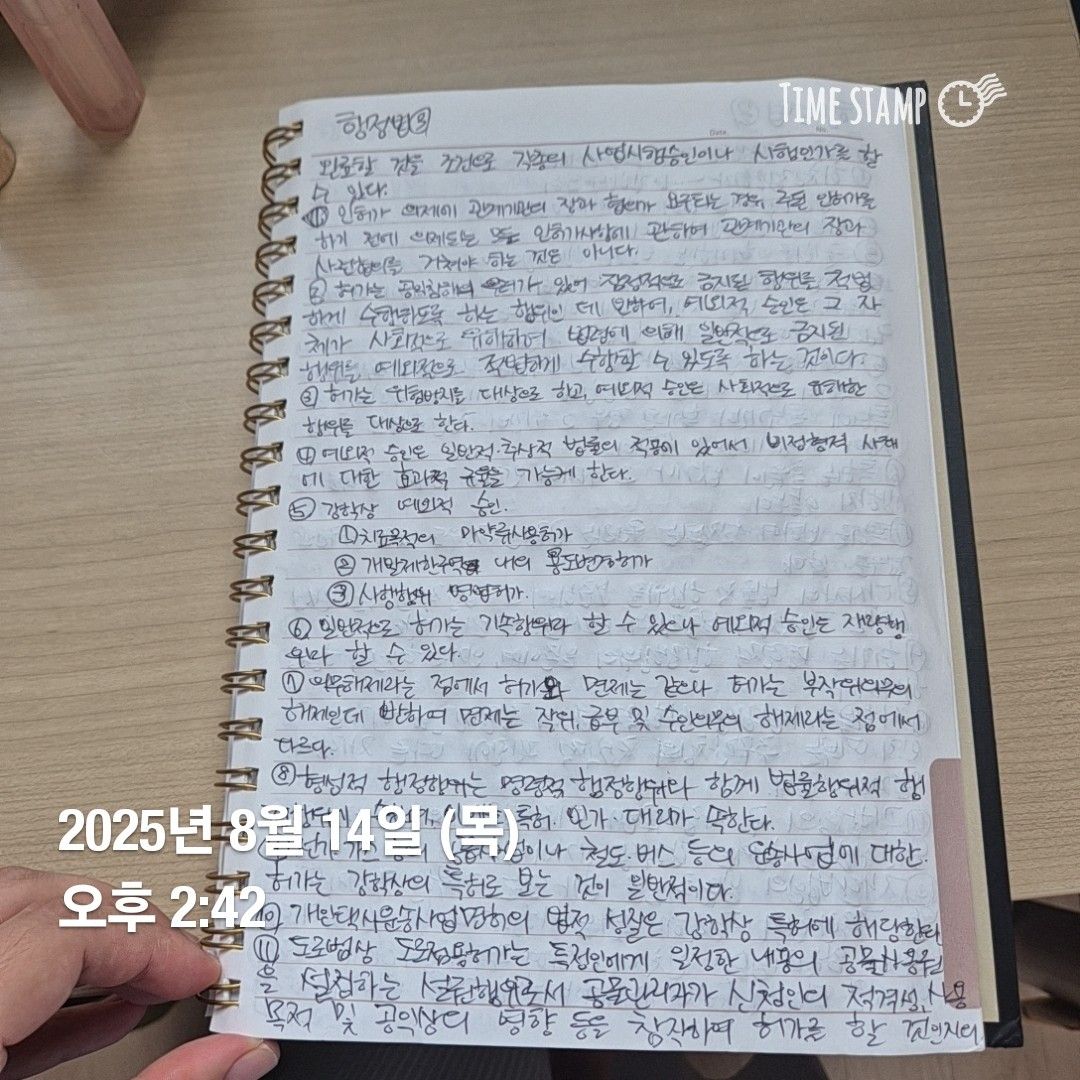 TIME STAMP
행정법③
Date. No.
완료할 것을 조건으로 각종의 사업시행승인이나 시행인가를 할
수 있다.
① 인허가 의제에 관계기관의 장과 협의가 요구되는 경우 주된 인허가를
하기 전에 의제되는 모든 인허가사항에 관하여 관계기관의 장과
사전협의를 거쳐야 하는 것은 아니다.
② 허가는 공익침해의 우려가 있어 잠정적으로 금지된 행위를 적법
하게 수행하도록 하는 행위인 데 반하여, 예외적 승인은 그 자
체가 사회적으로 유해하여 법령에 의해 일반적으로 금지된
행위를 예외적으로 적법하게 수행할 수 있도록 하는 것이다.
③ 허가는 위험방지를 대상으로 하고, 예외적 승인은 사회적으로 유해한
행위를 대상으로 한다.
④ 예외적 승인은 일반적·추상적 법률의 적용에 있어서 비정형적 사태
에 대한 효과적 규율을 가능케 한다.
⑤ 강학상 예외적 승인.
① 치료목적의 마약류사용허가
② 개발제한구역 내의 용도변경허가
③ 사행행위 영업허가.
⑥ 일반적으로 허가는 기속행위라 할 수 있으나 예외적 승인은 재량행
위라 할 수 있다.
⑦ 의무해제라는 점에서 허가와 면제는 같으나 허가는 부작위의무의
해제인데 반하여 면제는 작위, 급부 및 수인의무의 해제라는 점에서
다르다.
⑧ 형성적 행정행위는 명령적 행정행위와 함께 법률행위적 행
특허. 인가. 대리가 속한다.
이나 철도·버스 등의 운송사업에 대한
허가는 강학상의 특허로 보는 것이 일반적이다.
⑩ 개인택시운송사업면허의 법적 성질은 강학상 특허에 해당한다
⑪ 도로법상 도로점용허가는 특정인에게 일정한 내용의 공물사용권
을 설정하는 설권행위로서 공물관리자가 신청인의 적격성, 사용
목적 및 공익상의 영향 등을 참작하여 허가를 할 것인지의
2025년 8월 14일 (목)
오후 2:42